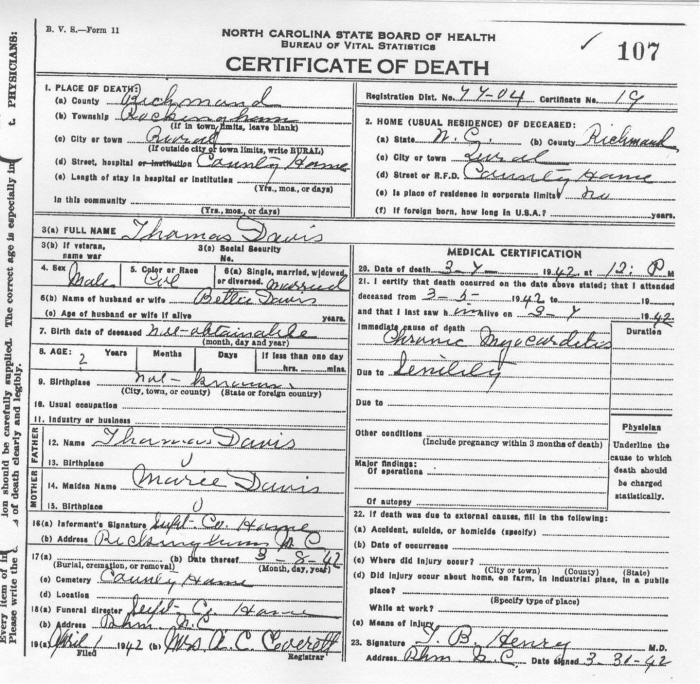 B. V. S.—Form 11
NORTH CAROLINA STATE BOARD OF HEALTH
BUREAU OF VITAL STATISTICS
CERTIFICATE OF DEATH
✓ 107
1. PLACE OF DEATH:
(a) County Richmond
(b) Township Rockingham
(If in town limits, leave blank)
(c) City or town Rural
(If outside city or town limits, write RURAL)
(d) Street, hospital or institution County Home
(e) Length of stay in hospital or institution
(Yrs., mos., or days)
In this community
(Yrs., mos., or days)
Registration Dist. No. 77-04 Certificate No. 19
2. HOME (USUAL RESIDENCE) OF DECEASED:
(a) State N. C. (b) County Richmond
(c) City or town Rural
(d) Street or R.F.D. County Home
(e) Is place of residence in corporate limits? no
(f) If foreign born, how long in U.S.A.? years.
3(a) FULL NAME Thomas Davis
3(b) If veteran, name war
3(c) Social Security No.
4. Sex Male
5. Color or Race Col
6(a) Single, married, widowed, or divorced. Married
6(b) Name of husband or wife Bettie Davis
(c) Age of husband or wife if alive years.
7. Birth date of deceased not-obtainable
(month, day and year)
8. AGE: 2 Years Months Days If less than one day
hrs. mins.
9. Birthplace not-known
(City, town, or county) (State or foreign country)
10. Usual occupation
11. Industry or business
FATHER
12. Name Thomas Davis
13. Birthplace
MOTHER
14. Maiden Name Davis
15. Birthplace
16(a) Informant's Signature Supt-Co. Home
(b) Address Rockingham N C
17(a) (b) Date thereof 3-8-42
(Burial, cremation, or removal) (Month, day, year)
(c) Cemetery County Home
(d) Location
18(a) Funeral director Supt-Co Home
(b) Address Rhm N.C
19(a) April 1 1942 (b) Mrs. A. C. Everett
Filed Registrar
MEDICAL CERTIFICATION
20. Date of death 3-7 1942 at 12: P M
21. I certify that death occurred on the date above stated; that I attended
deceased from 3-5- 1942 to 19
and that I last saw h im alive on 3-7 1942
Immediate cause of death Duration
Chronic Myocarditis
Due to Senility
Due to
Other conditions
(Include pregnancy within 3 months of death)
Major findings:
Of operations
Of autopsy
Physician
Underline the cause to which death should be charged statistically.
22. If death was due to external causes, fill in the following:
(a) Accident, suicide, or homicide (specify)
(b) Date of occurrence
(c) Where did injury occur?
(City or town) (County) (State)
(d) Did injury occur about home, on farm, in industrial place, in a public
place?
(Specify type of place)
While at work?
(e) Means of injury
23. Signature B. Henry M.D.
Address Rhm N.C. Date signed 3-31-42
PHYSICIANS:
The correct age is especially
ion should be carefully supplied.
of death clearly and legibly.
Every item of
Please write the